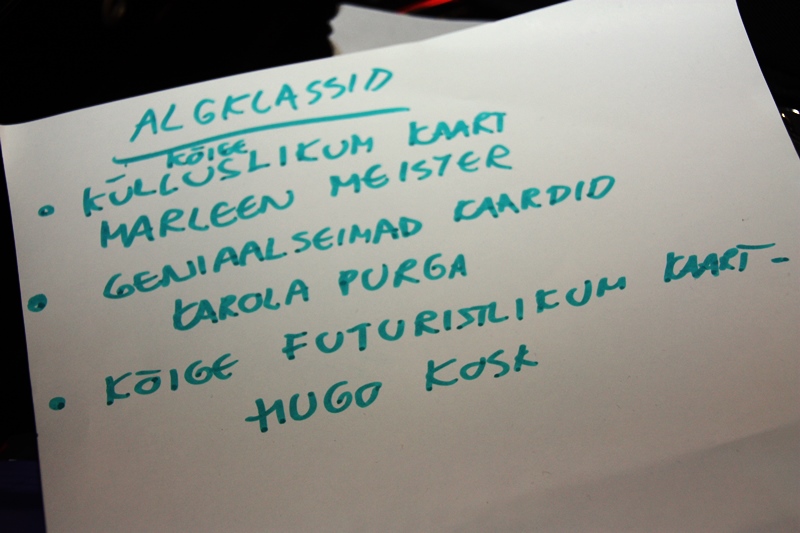 ALGKLASSID
KÕIGE
• KÜLLUSLIKUM KAART
MARLEEN MEISTER
• GENIAALSEIMAD KAARDID
KAROLA PURGA
• KÕIGE FUTURISTLIKUM KAART-
HUGO KOSK